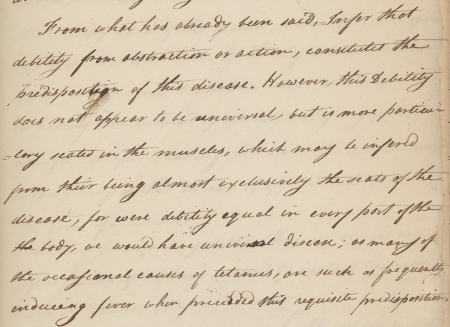 From what has already been said, Infer that
debility from abstraction or action, constitutes the
predisposition of this disease. However, this Debility
does not appear to be universal, but is more particu-
-lary seated in the muscles, which may be infered
from their being almost exclusively the seats of the
disease, for were debility equal in every part of the
the body, we would have universal disease; as many of
the occasional causes of tetanus, are such as frequently
inducing fever when preceded this requisite predisposition